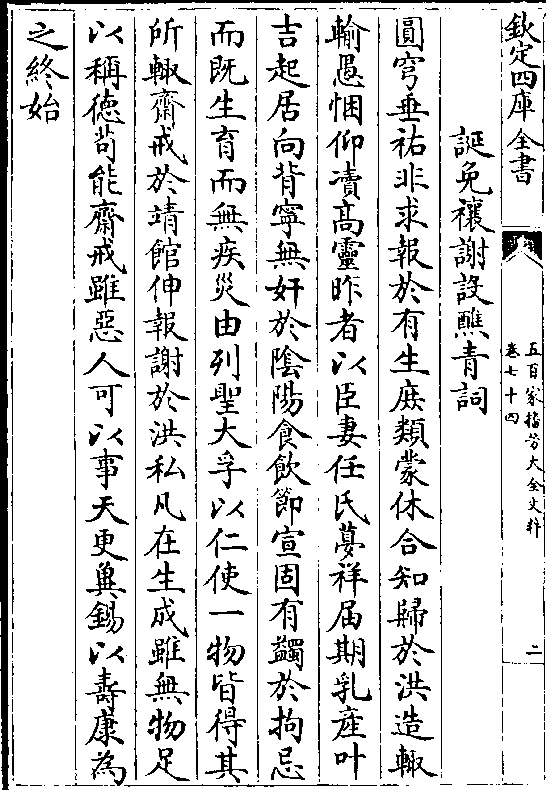 欽定四庫全書
五百家播芳大全文粹
卷七十四
二
誕免禳謝設醮青詞
圓穹垂祐非求報於有生庶類蒙休合知歸於洪造輙
輸愚悃仰瀆髙靈昨者以臣妻任氏夢祥届期乳產叶
吉起居向背寧無奸於陰陽食飲節宣固有蠲於拘忌
而既生育而無疾災由列聖大孚以仁使一物皆得其
所輙齋戒於靖館伸報謝於洪私凡在生成雖無物足
以稱德茍能齋戒雖惡人可以事天更兾錫以壽康為
之終始